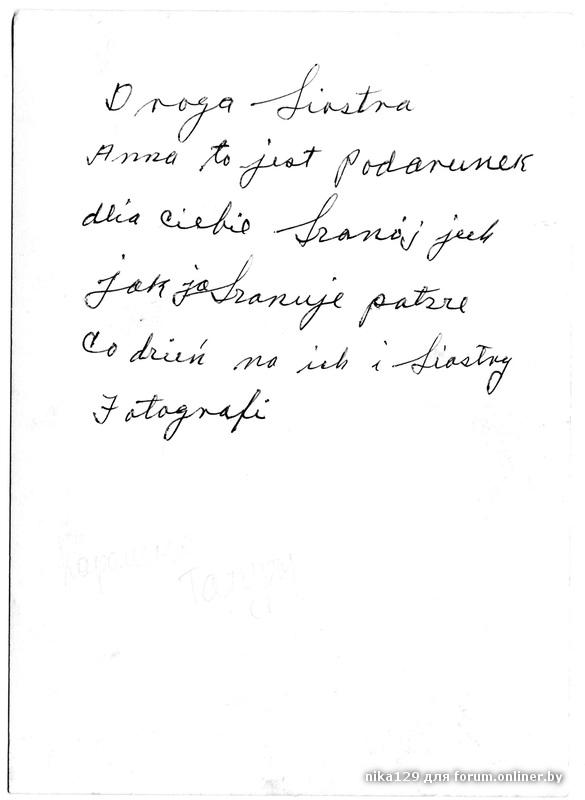 Droga Siostra
Anna to jest podarunek
dlia ciebie Szanój jech
jak ja Szanuje patrze
Co dzień na ich i Siostry
Fotografi
nika129 для forum.onliner.by